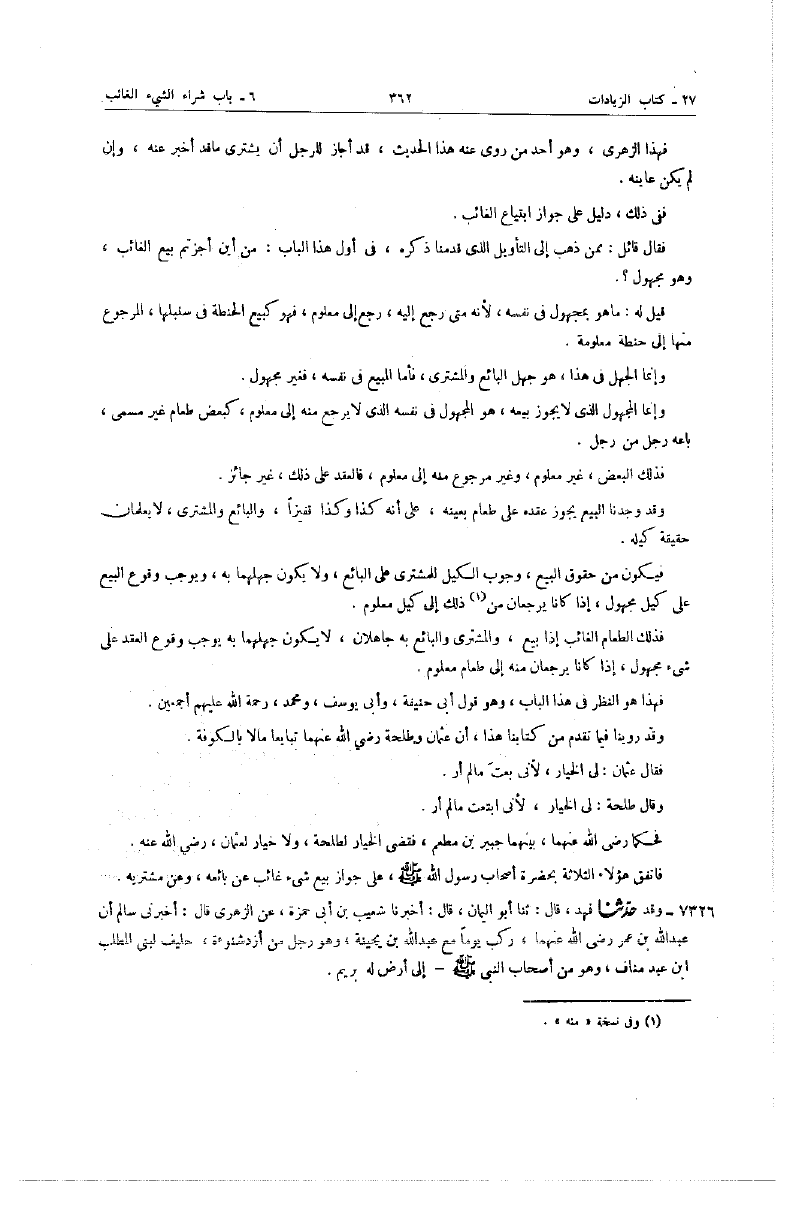 ٢٧ ـ كتاب الزيادات ٣٦٢ ٦ ـ باب شراء الشيء الغائب
فهذا الزهرى ، وهو أحد من روى عنه هذا الحديث ، قد أجاز للرجل أن يشترى ماقد أخبر عنه ، وإن
لم يكن عاينه .
ففى ذلك ، دليل على جواز ابتياع الغائب .
فقال قائل : ممن ذهب إلى التأويل الذى قدمنا ذكره ، فى أول هذا الباب : من أين أجزتم بيع الغائب ،
وهو مجهول ؟.
قيل له : ماهو بمجهول فى نفسه ، لأنه متى رجع إليه ، رجع إلى معلوم ، فهو كبيع الحنطة فى سنبلها ، المرجوع
منها إلى حنطة معلومة .
وإنما الجهل فى هذا ، هو جهل البائع والمشترى ، فأما المبيع فى نفسه ، فغير مجهول .
وإنما المجهول الذى لايجوز بيعه ، هو المجهول فى نفسه الذى لايرجع منه إلى معلوم ، كبعض طعام غير مسمى ،
باعه رجل من رجل .
فذلك البعض ، غير معلوم ، وغير مرجوع منه إلى معلوم ، فالعقد على ذلك ، غير جائز .
وقد وجدنا البيع يجوز عقده على طعام بعينه ، على أنه كذا وكذا قفيزاً ، والبائع والمشترى ، لايعلمان
حقيقة كيله .
فيكون من حقوق البيع ، وجوب الكيل للمشترى على البائع ، ولا يكون جهلهما به ، ويوجب وقوع البيع
على كيل مجهول ، إذا كانا يرجعان من(١) ذلك إلى كيل معلوم .
فذلك الطعام الغائب إذا بيع ، والمشترى والبائع به جاهلان ، لايكون جهلهما به يوجب وقوع العقد على
شىء مجهول ، إذا كانا يرجعان منه إلى طعام معلوم .
فهذا هو النظر فى هذا الباب ، وهو قول أبى حنيفة ، وأبى يوسف ، ومحمد ، رحمة الله عليهم أجمعين .
وقد روينا فيما تقدم من كتابنا هذا ، أن عثمان وطلحة رضي الله عنهما تبايعا مالا بالكوفة .
فقال عثمان : لى الخيار ، لأنى بعت مالم أر .
وقال طلحة : لى الخيار ، لأنى ابتعت مالم أر .
فحكما رضى الله عنهما ، بينهما جبير بن مطعم ، فقضى الخيار لطلحة ، ولا خيار لعثمان ، رضي الله عنه .
فاتفق هؤلاء الثلاثة بحضرة أصحاب رسول الله ﷺ ، على جواز بيع شىء غائب عن بائعه ، وعن مشتريه .
٧٣٢٦ ـ وقد حدثنا فهد ، قال : ثنا أبو اليمان ، قال : أخبرنا شعيب بن أبى حمزة ، عن الزهرى قال : أخبرنى سالم أن
عبدالله بن عمر رضى الله عنهما ، ركب يوماً مع عبدالله بن بحينة ، وهو رجل من أزدشنوءة ، حليف لبنى المطلب
ابن عبد مناف ، وهو من أصحاب النبى ﷺ – إلى أرض له بريم .
(١) وفى نسخة « منه » .